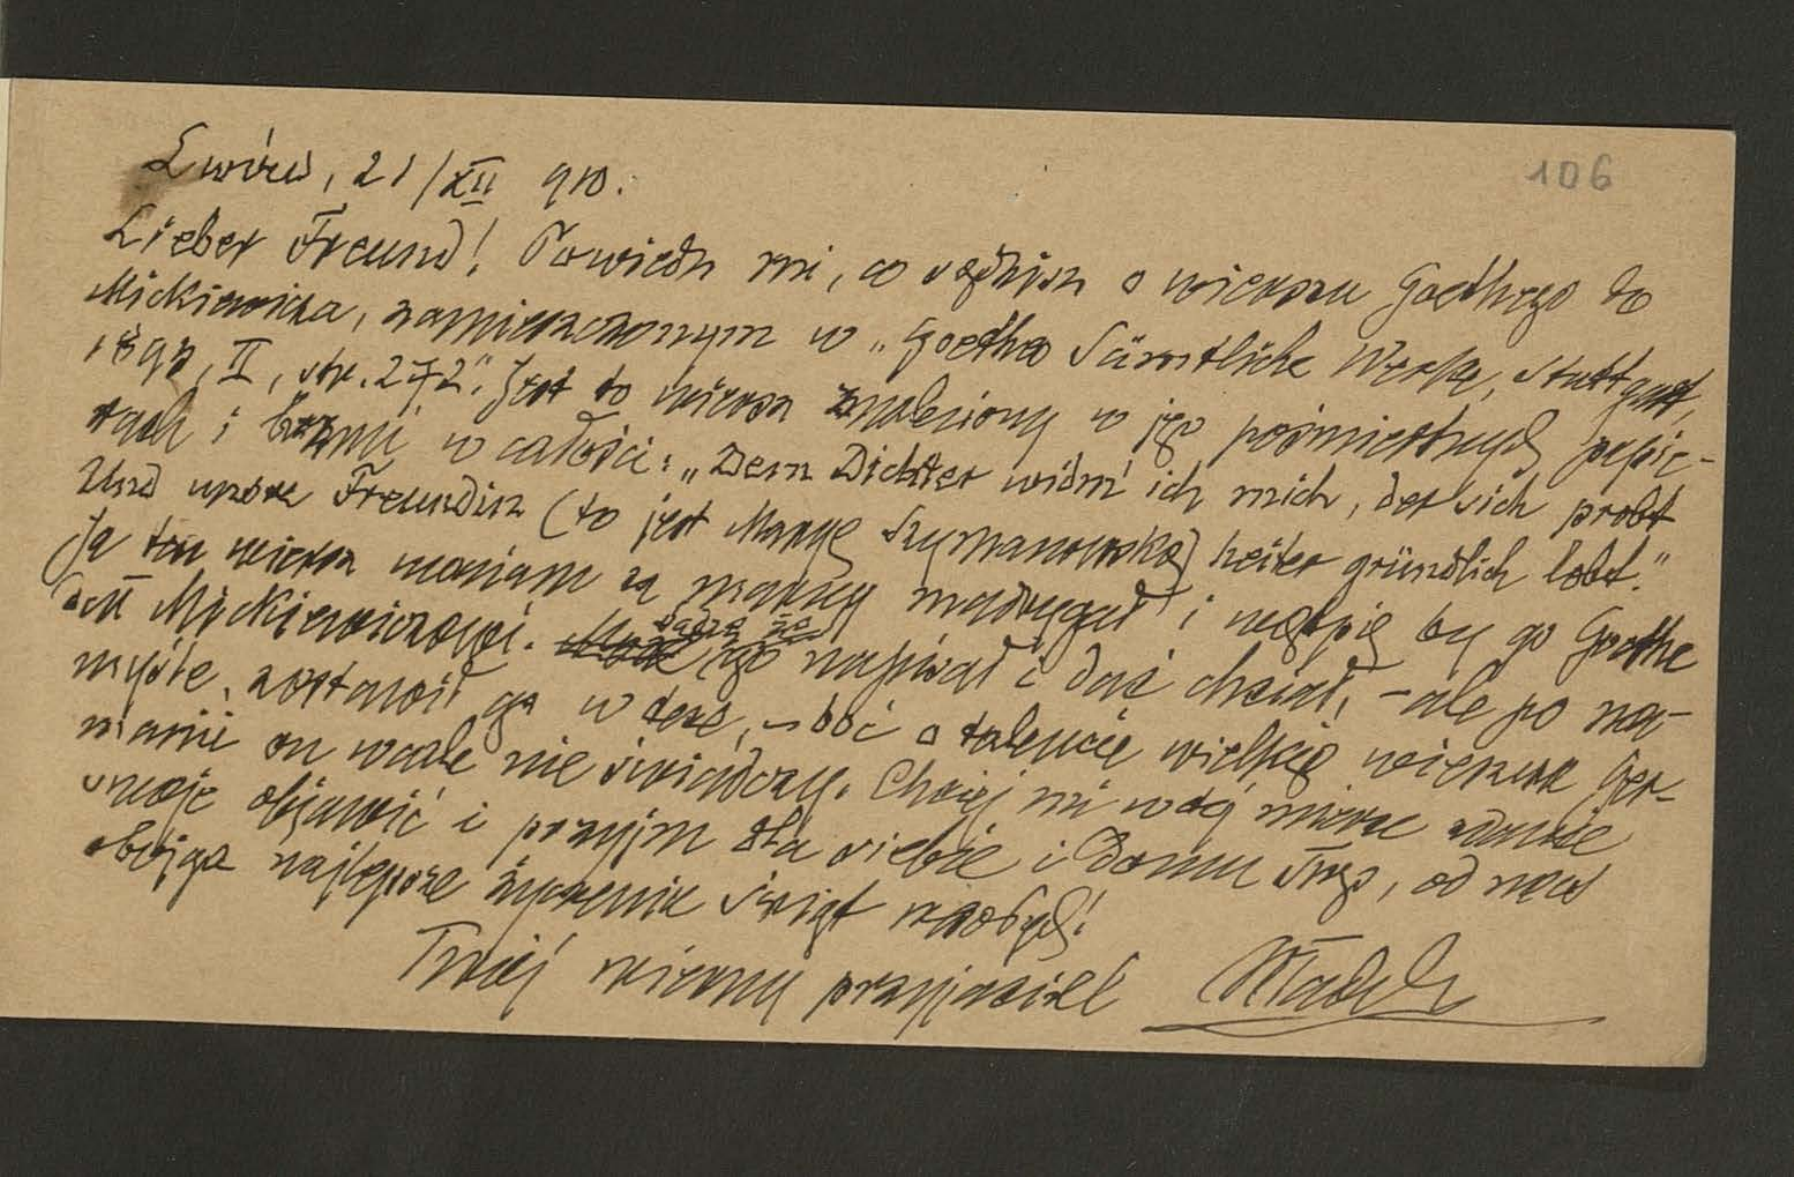 106
Lwów, 21/XII 910.
Lieber Freund! Powiedz mi, co sądzisz o wierszu Goethego do
Mickiewicza, zamieszczonym w „Goethes Sämtliche Werke, Stuttgart,
189, II, str. 272". Jest to wiersz znaleziony w jego pośmiertnych papie-
rach i brzmi w całości: „Dem Dichter widm' ich mich, der sich probt
Und unsre Freundin (to jest Maryę Szymanowską) heiter gründlich lobt."
Ja ten wiersz uważam za marny madrygał i wątpię by go Goethe
dał Mickiewiczowi. sądzę że napisał i dać chciał, – ale po na-
myśle, zostawił go w tece, – boć o talencie wielkiego wieszcza Ger-
manii on wcale nie świadczy. Chciej mi w tej mierze zdanie
swoje objawić i przyjm dla siebie i Domu Twego, od nas
obojga najlepsze życzenia świąt wesołych!
Twój wierny przyjaciel